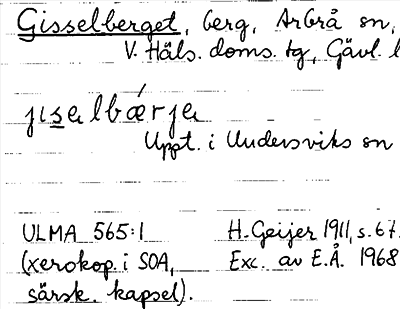 Gisselberget, berg, Arbrå sn,
V. Häls. doms. tg, Gävl. l
jisalbǽrja
Uppt. i Undersviks sn
ULMA 565:1 H. Geijer 1911, s. 67.
(xerokop. i SOA, Exc. av E.Å. 1968
särsk. kapsel).